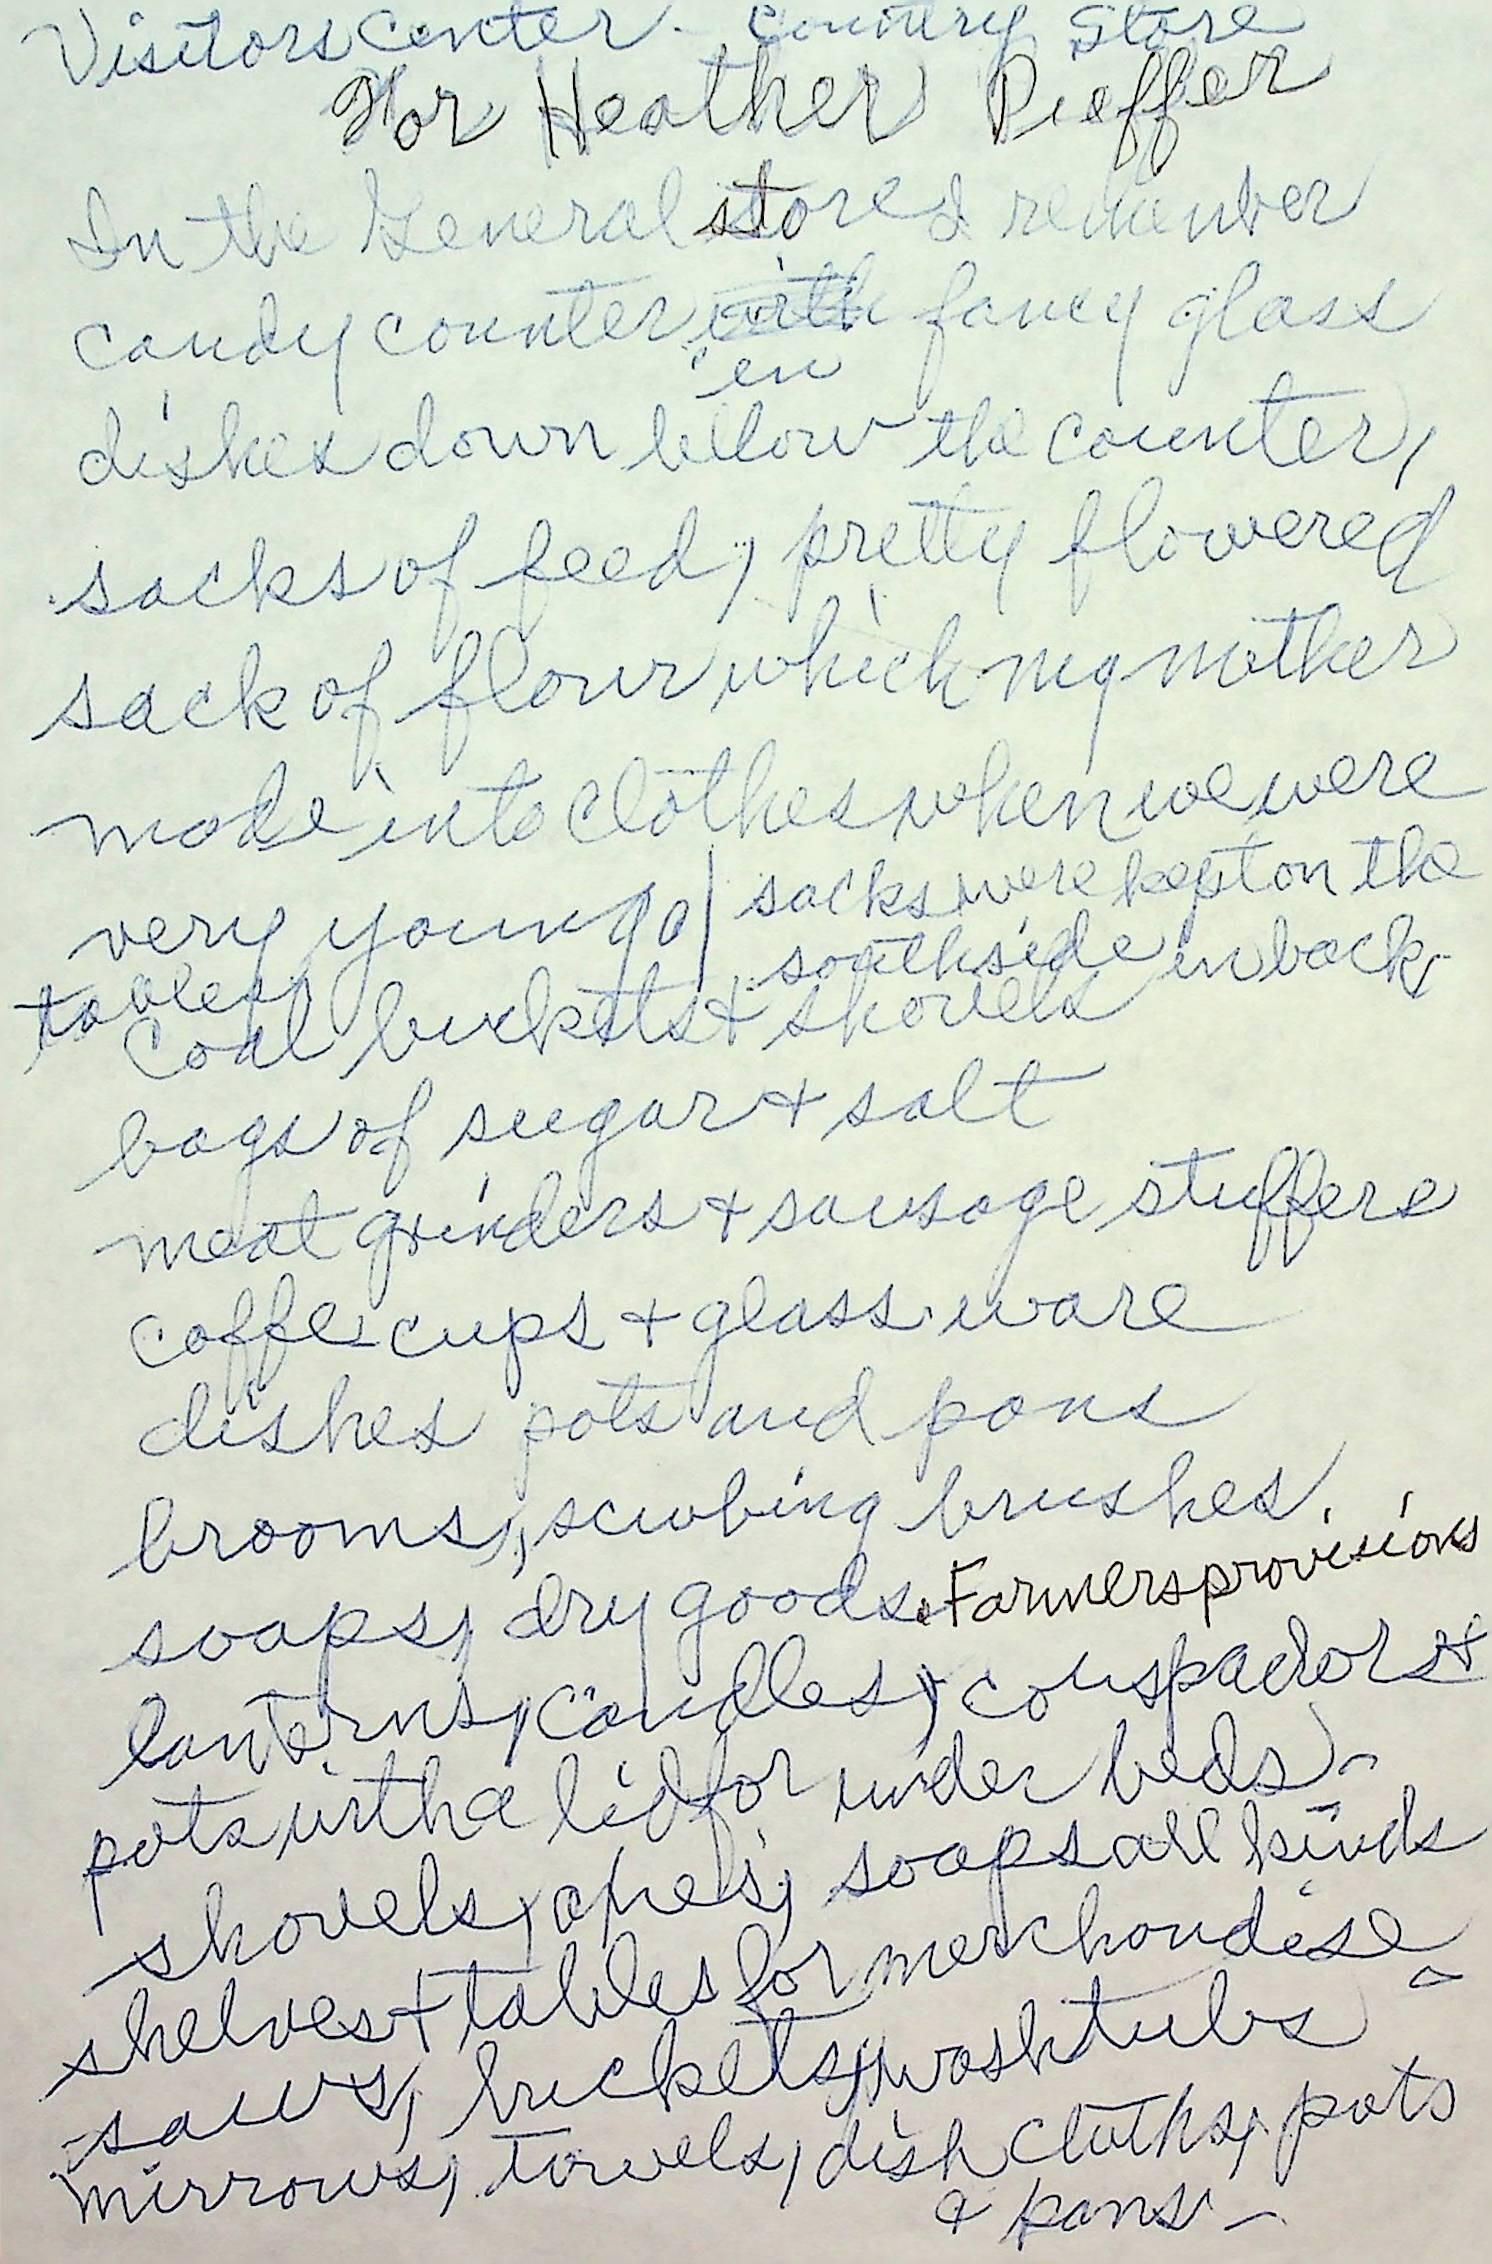 Visitors Center - Country Store
For Heather Pieffer
In the General store I remember
candy counter with fancy glass
en
dishes down bellow the counter,
sacks of feed, pretty flowered
sack of flour which my mother
made into clothes when we were
very young. sacks were kept on the
southside in back
tables
Coal buckets + shovels
bags of sugar + salt
meat grinders + sausage stuffers
coffe cups + glass ware
dishes pots and pans
brooms, scrubing brushes.
soaps, dry goods. Farmers provisions
lanterns, candles, couspadors +
pots with a lid for under beds -
shovels, soaps all kinds
shelves + tables for merchandise -
saws, buckets, washtubs
mirrows, towels, dish cloths, pots
+ pans -